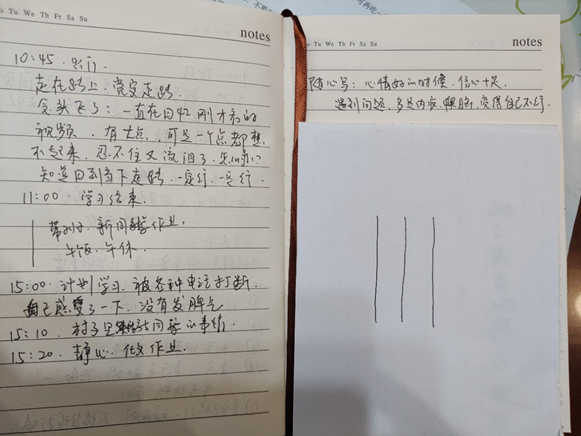 o Tu We Th Fr Sa Su
notes
10:45. 出门
走在路上,觉定走路
念头飞了:一直在回忆刚才看的
视频,有七点,可是一个点都想
不起来,忍不住又流泪了,怎么办?
知道回到当下走路.一定行.一定行.
11:00 学习结束.
作业.
午饭.午休.
15:00.计划学习.被各种电话打断.
自己感受了一下,没有发脾气
15:10.
15:20.静心.作业.
o Tu We Th Fr Sa Su
notes
随心写:心情好的时候,信心十足.
遇到问题,多是内疚,觉得自己不行.